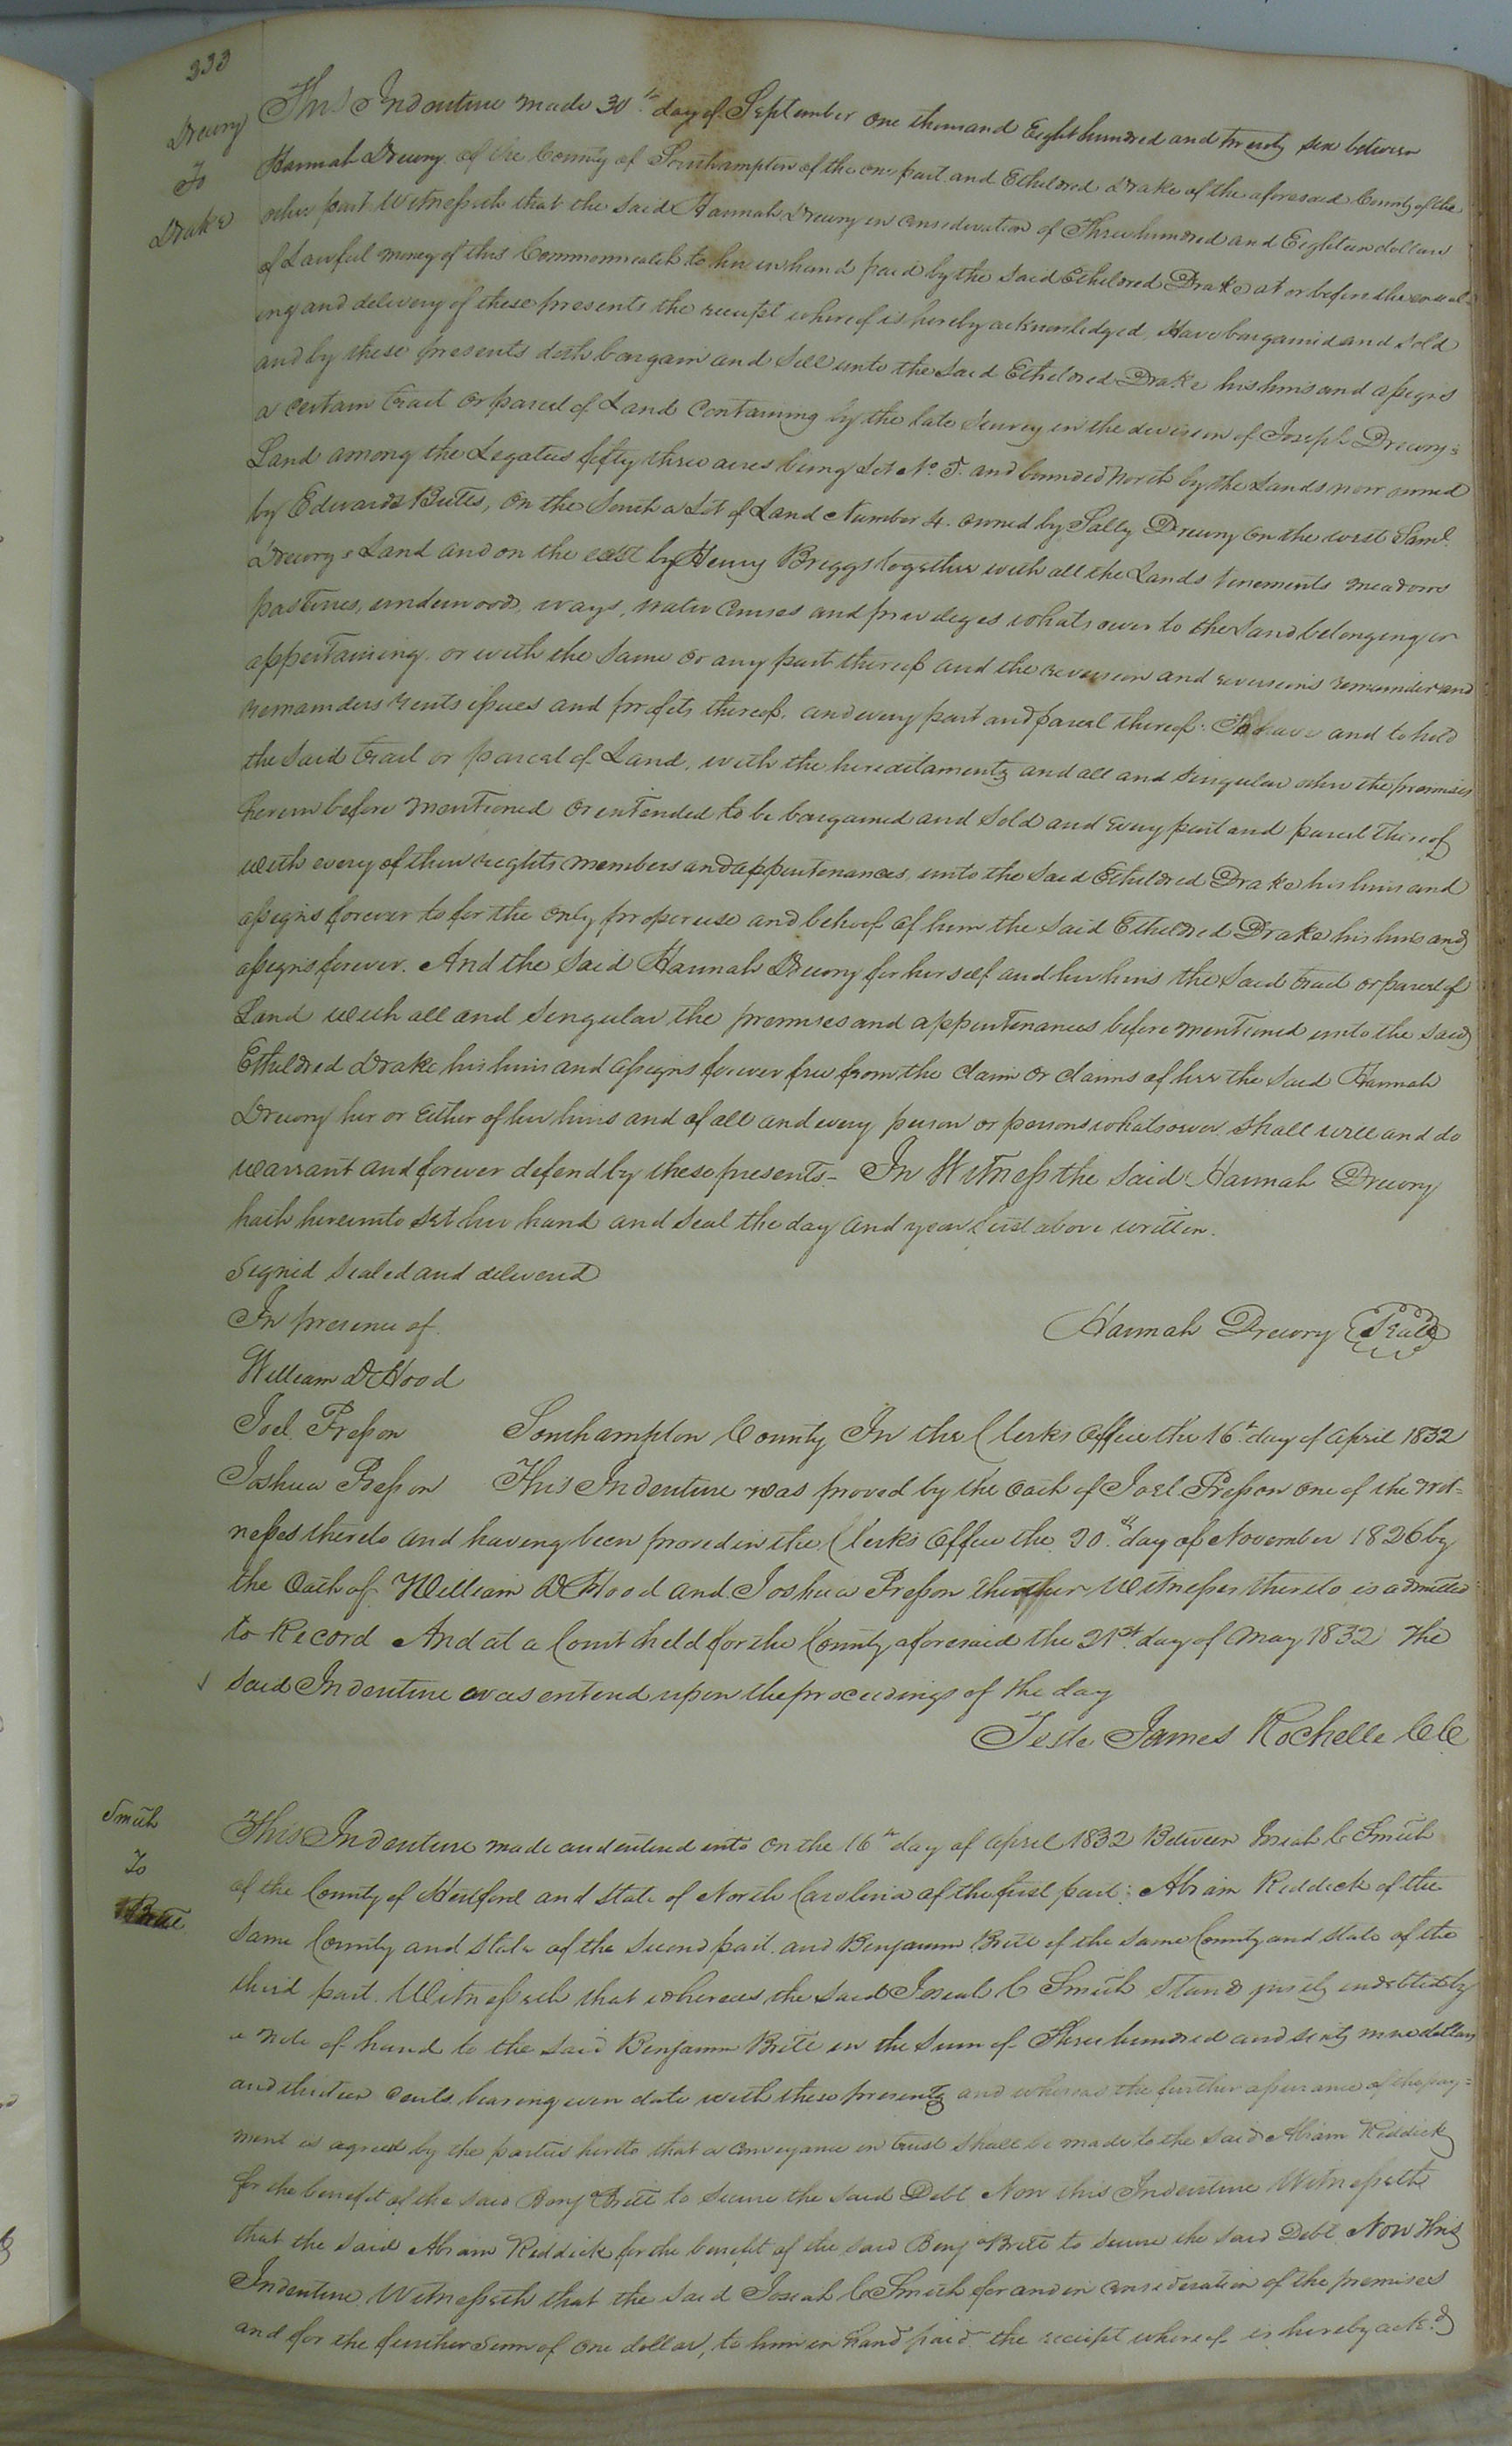 333
Drewry
To
Drake
This Indenture made 30th day of September one thousand Eight hundred and twenty six between
Hannah Drewry of the County of Southampton of the one part and Etheldred Drake of the aforesaid County of the
other part Witnesseth that the said Hannah Drewry in consideration of Three hundred and Eighteen dollars
of Lawful money of this Commonwealth to her in hand paid by the said Etheldred Drake at or before the enseal-
ing and delivery of these presents the receipt whereof is hereby acknowledged, Have bargained and sold
and by these presents doth bargain and sell unto the said Etheldred Drake his heirs and assigns
a certain tract or parcel of Land Containing by the late survey in the division of Joseph Drewry's
Land among the Legatees fifty three acres being Lot No. 5. and bounded North by the Lands now owned
by Edwards Butts, on the South a Lot of Land Number 4. owned by Sally Drewry on the west Saml.
Drewry's Land and on the east by Henry Briggs together with all the Lands tenements meadows
pastures, underwood, ways, water courses and priveleges whatsoever to the Land belonging or
appertaining, or with the same or any part thereof and the reversion and reversions remainder and
remainders rents issues and profits thereof, and every part and parcel thereof: To have and to hold
the said tract or parcel of Land, with the hereditaments and all and singular other the premises
herein before mentioned or intended to be bargained and sold and every part and parcel thereof
with every of their rights members and appurtenances, unto the said Etheldred Drake his heirs and
assigns forever to for the only proper use and behoof of him the said Etheldred Drake his heirs and
assigns forever. And the said Hannah Drewry for herself and her heirs the said tract or parcel of
Land with all and singular the premises and appurtenances before mentioned unto the said
Etheldred Drake his heirs and assigns forever free from the claim or claims of her the said Hannah
Drewry her or either of her heirs and of all and every person or persons whatsoever shall will and do
warrant and forever defend by these presents - In Witness the said Hannah Drewry
hath hereunto set her hand and seal the day and year first above written.
Signed sealed and delivered
In presence of
Hannah Drewry Seal
William D Hood
Joel Presson
Southampton County In the Clerks office the 16th day of April 1832
Joshua Presson
This Indenture was proved by the oath of Joel Presson one of the wit=
nesses thereto and having been proved in the Clerks office the 20th day of November 1826 by
the Oath of William D Hood and Joshua Presson the other Witnesses thereto is admitted
to Record And at a Court held for the County aforesaid the 21st day of May 1832 The
said Indenture was entered upon the proceedings of the day
Teste James Rochelle CC
Smith
To
Brite
This Indenture made and entered into on the 16th day of April 1832 Between Josiah C Smith
of the County of Hertford and State of North Carolina of the first part: Abram Riddick of the
same County and State of the second part and Benjamin Brite of the same County and State of the
third part. Witnesseth that whereas the said Josiah C Smith stand justly indebted by
a note of hand to the said Benjamin Brite in the sum of Three hundred and sixty nine dollars
and thirteen cents bearing even date with these presents and whereas the further assurance of the pay=
ment is agreed by the parties hereto that a conveyance in trust shall be made to the said Abram Riddick
for the benefit of the said Benja Brite to secure the said Debt Now this Indenture Witnesseth
that the said Abram Riddick for the benefit of the said Benja Brite to secure the said Debt. Now this
Indenture Witnesseth that the said Josiah C Smith for and in consideration of the premises
and for the further sum of one dollar, to him in hand paid the receipt whereof is hereby ackd